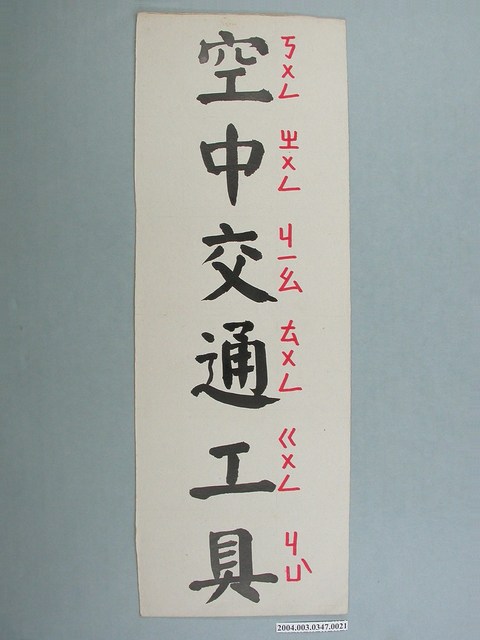 空中交通工具
ㄎㄨㄥ ㄓㄨㄥ ㄐㄧㄠ ㄊㄨㄥ ㄍㄨㄥ ㄐㄩˋ
2004.003.0347.0021